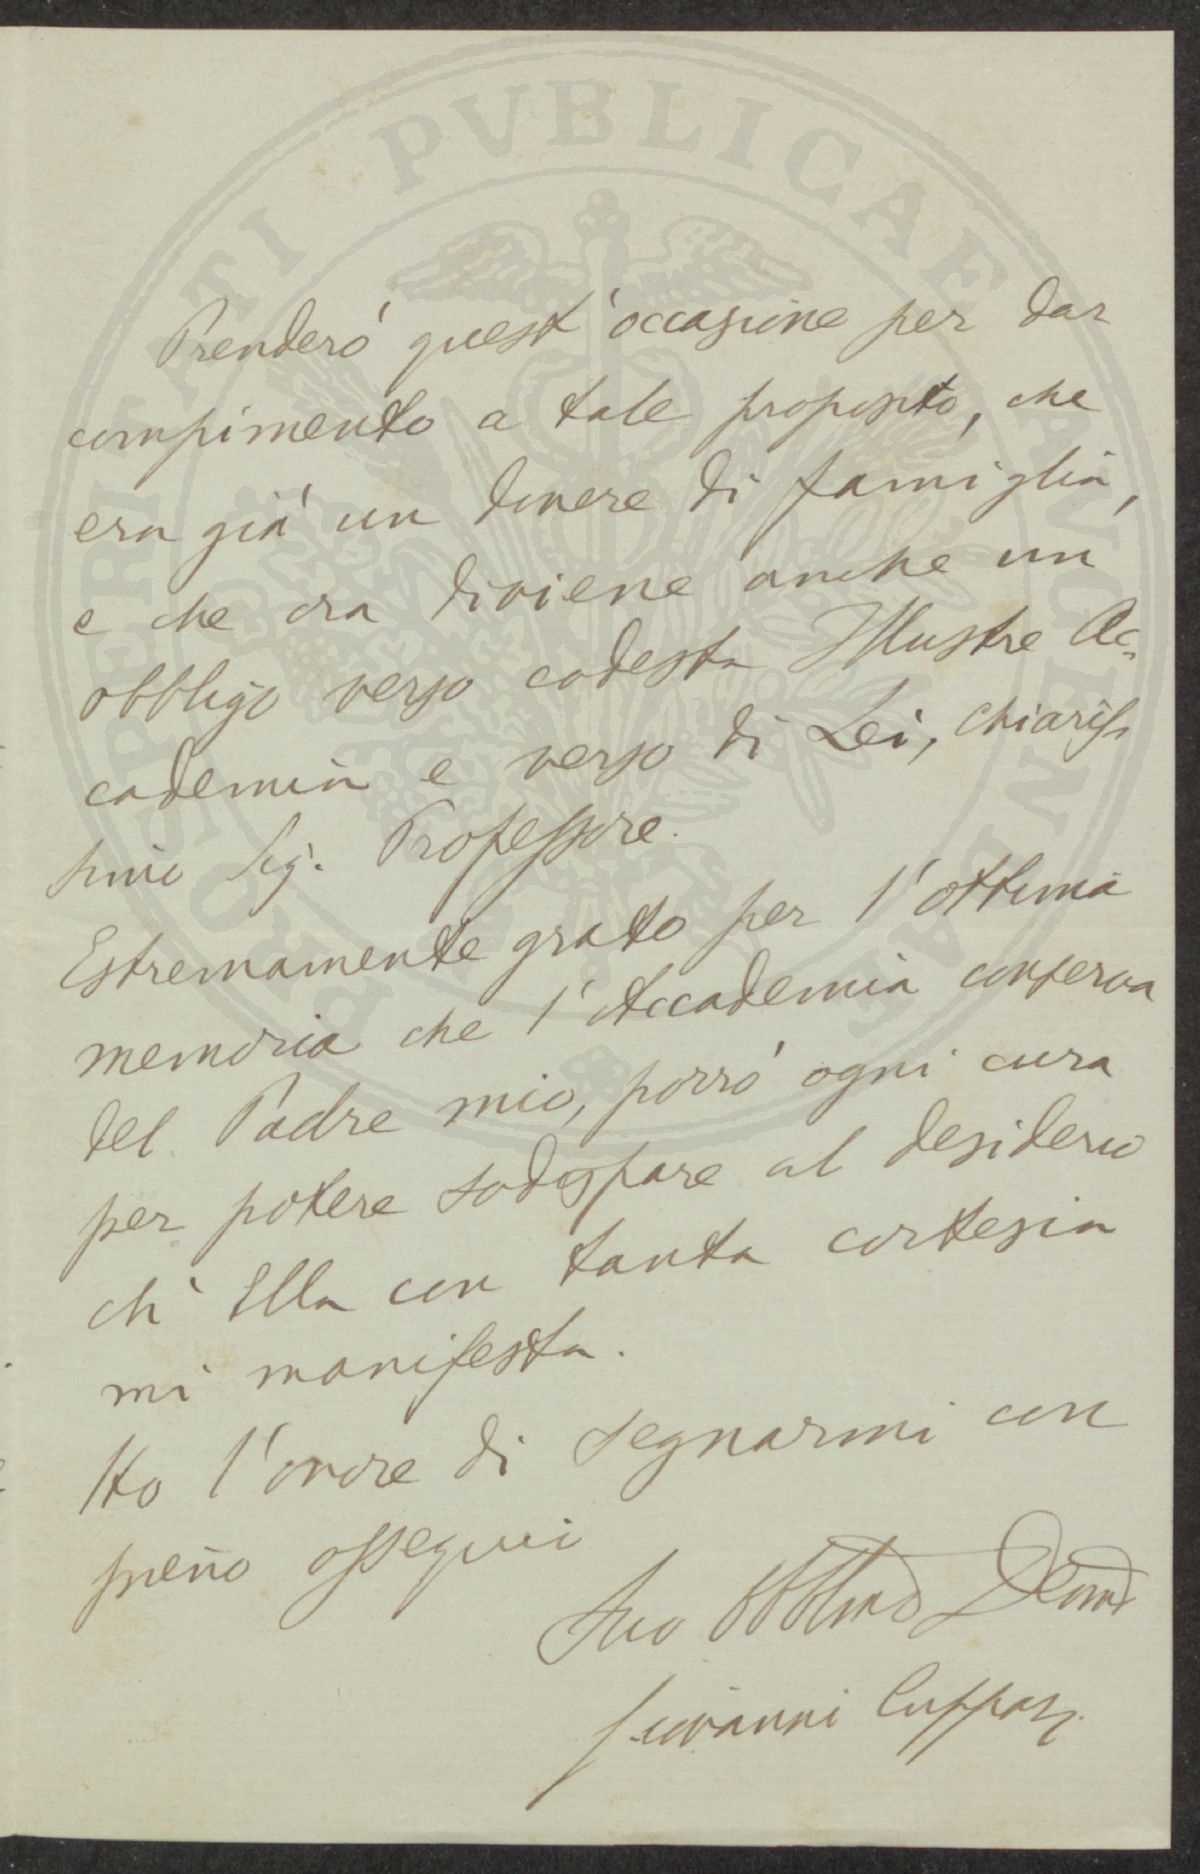 PROSPERITATI PVBLICAE AVGENDAE
Prenderó quest'occasione per dar
compimento a tale proposito, che
era giá un dovere di famiglia,
e che ora diviene anche un
obbligo verso codesta Illustre Ac-
cademia e verso di Lei, chiaris
simo Sig. Professore.
Estremamente grato per l'ottima
memoria che l'Accademia conserva
del Padre mio, porró ogni cura
per potere sodisfare al desiderio
ch'Ella con tanta cortesia
mi manifesta.
Ho l'onore di segnarmi con
pieno ossequi
Suo Obblmo Devmo
Giovanni Cuppari